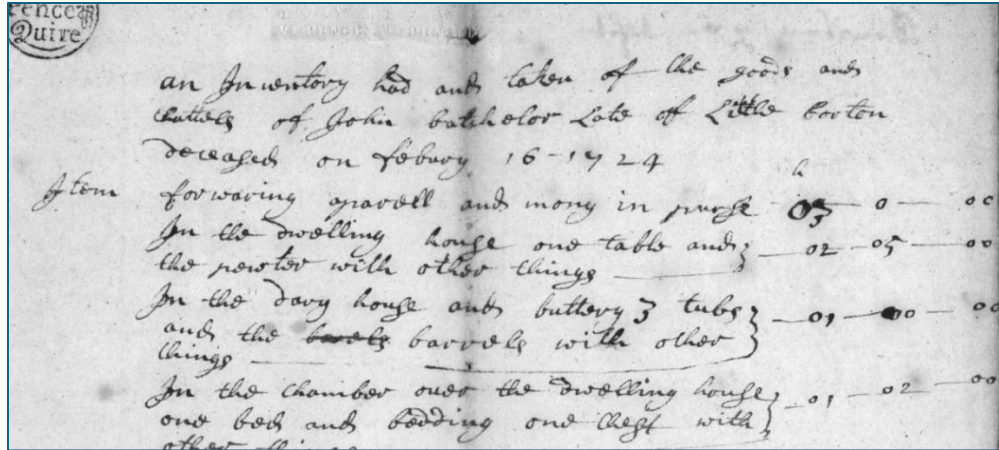 Pence
Quire
an Inventory had and taken of the goods and
Chattels of John batchelor Late of Little borton
deceased on febury 16-1724
Item forwaring aparell and mony in purse 03 — 0 — 00
In the dwelling house one table and 02 — 05 — 00
the pewter with other things
In the dary house and buttery 3 tubs 01 — 00 — 00
and the barrels with other
things
In the Chamber over the dwelling house 01 — 02 — 00
one bed and bedding one Chest with
other